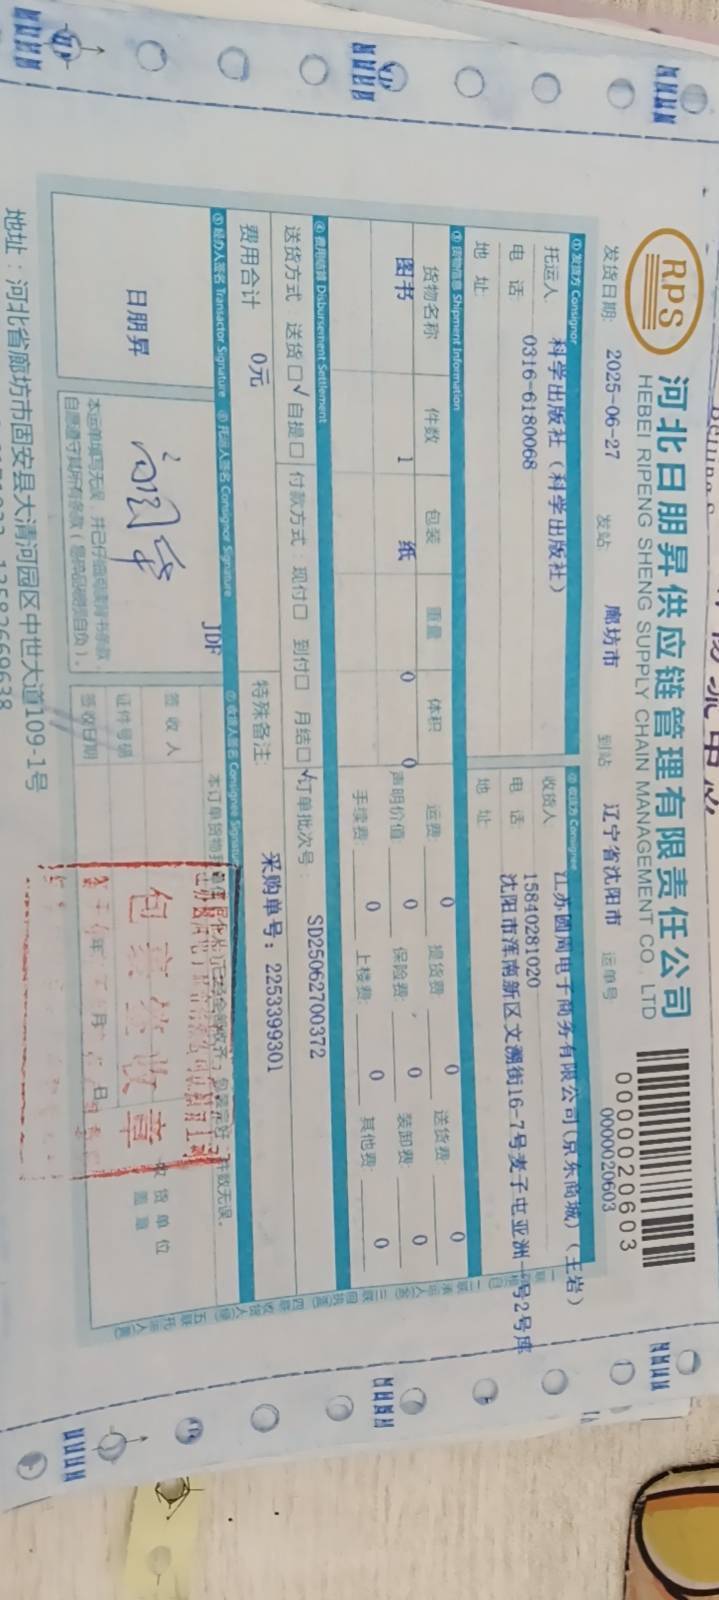 RPS
河北日朋昇供应链管理有限责任公司
HEBEI RIPENG SHENG SUPPLY CHAIN MANAGEMENT CO., LTD
0000020603
发货日期: 2025-06-27 发站: 廊坊市 到站: 辽宁省沈阳市 运单号 0000020603
①发货方 Consignor ②收货方 Consignee
托运人 科学出版社（科学出版社） 收货人 江苏圆周电子商务有限公司(京东商城)(王岩)
电 话 0316-6180068 电 话: 15840281020
地 址 地 址: 沈阳市浑南新区文溯街16-7号麦子屯亚洲一号2号库
③货物信息 Shipment Information
货物名称 件数 包装 重量 体积 运费: 0 提货费 0 送货费: 0
图书 1 纸 0 0 声明价值: 0 保险费: 0 装卸费: 0
手续费: 0 上楼费: 0 其他费: 0
④费用结算 Disbursement Settlement
送货方式: 送货☐√ 自提☐ 付款方式: 现付☐ 到付☐ 月结☐√ 订单批次号: SD25062700372
费用合计 0元 特殊备注: 采购单号: 2253399301
⑤经办人签名 Transactor Signature ⑥托运人签名 Consignor Signature ⑦收货人签名 Consignee Signature
JDF
日朋昇
包装完好，件数无误。
签收人
证件号码
签收日期 年 月 日
收货单位
盖章
包实签收章
地址：河北省廊坊市固安县大清河园区中世大道109-1号